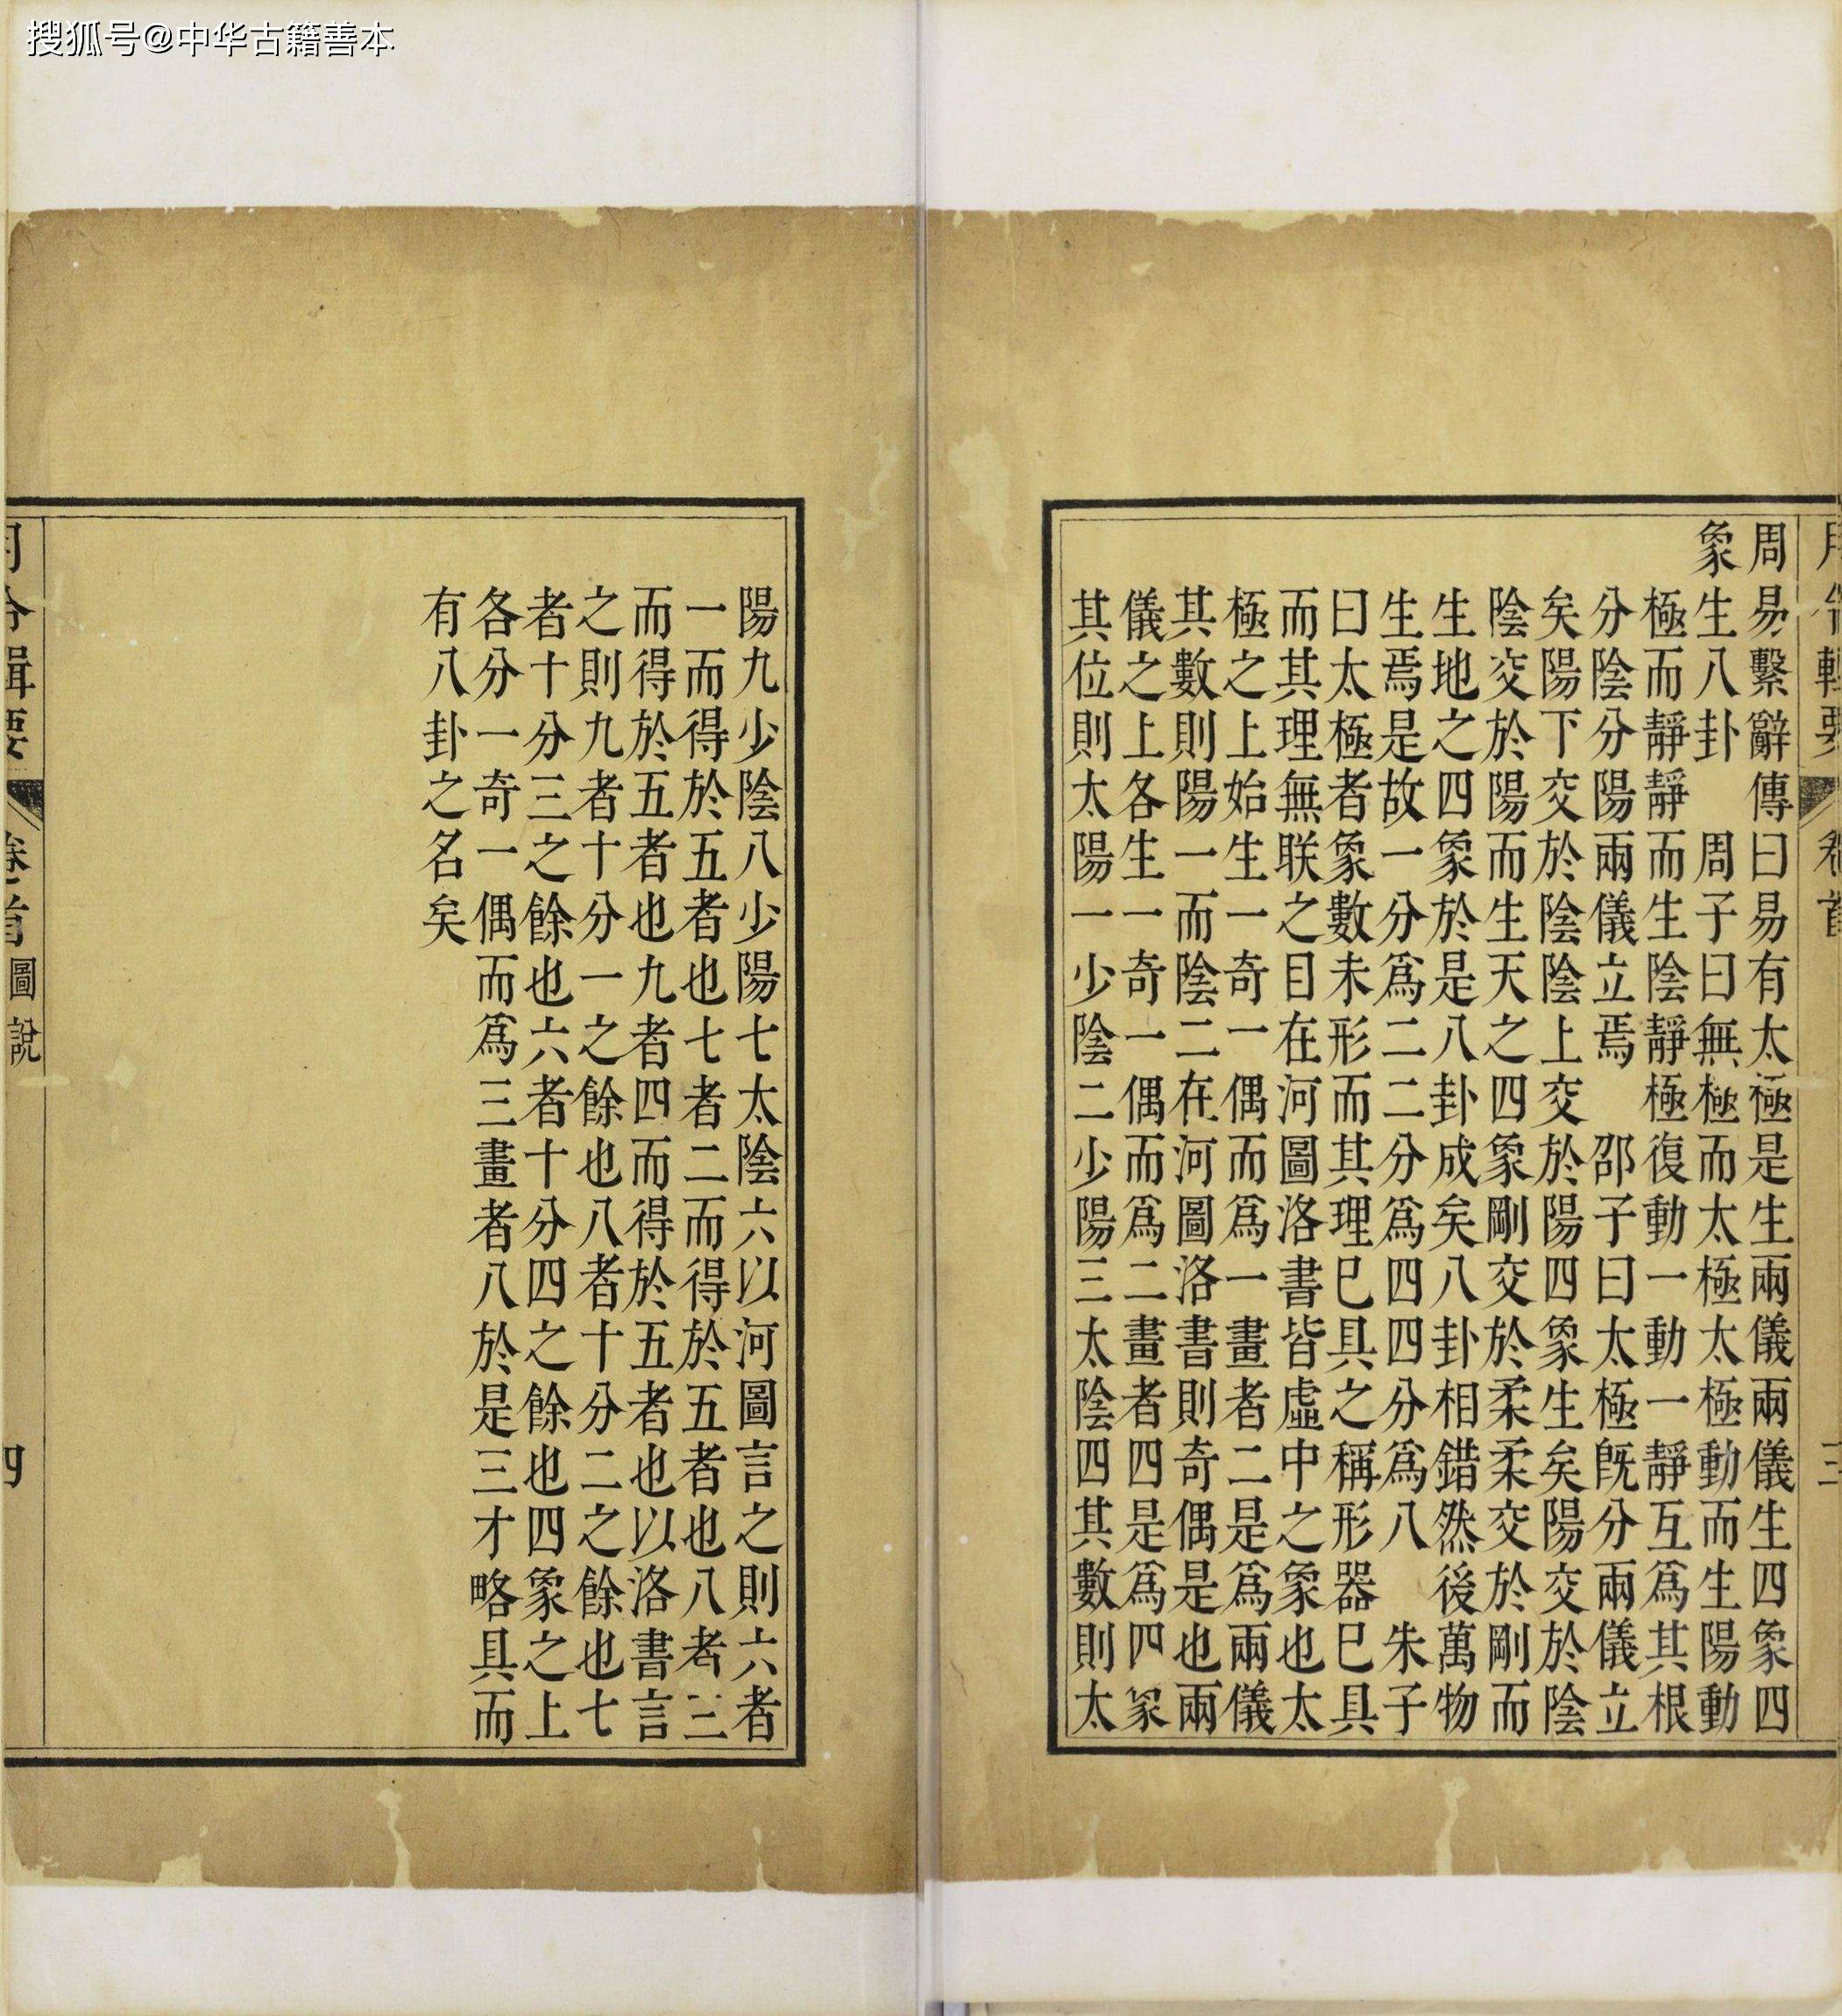 搜狐号@中华古籍善本
月令輯要 卷首 三
周易繫辭傳曰易有太極是生兩儀兩儀生四象四
象生八卦 周子曰無極而太極太極動而生陽動
極而靜靜而生陰靜極復動一動一靜互爲其根
分陰分陽兩儀立焉 邵子曰太極旣分兩儀立
矣陽下交於陰陰上交於陽四象生矣陽交於陰
陰交於陽而生天之四象剛交於柔柔交於剛而
生地之四象於是八卦成矣八卦相錯然後萬物
生焉是故一分爲二二分爲四四分爲八 朱子
曰太極者象數未形而其理巳具之稱形器巳具
而其理無联之目在河圖洛書皆虛中之象也太
極之上始生一奇一偶而爲一畫者二是爲兩儀
其數則陽一而陰二在河圖洛書則奇偶是也兩
儀之上各生一奇一偶而爲二畫者四是爲四象
其位則太陽一少陰二少陽三太陰四其數則太
陽九少陰八少陽七太陰六以河圖言之則六者
一而得於五者也七者二而得於五者也八者三
而得於五者也九者四而得於五者也以洛書言
之則九者十分一之餘也八者十分二之餘也七
者十分三之餘也六者十分四之餘也四象之上
各分一奇一偶而爲三畫者八於是三才略具而
有八卦之名矣
月令輯要 卷首 圖說 四